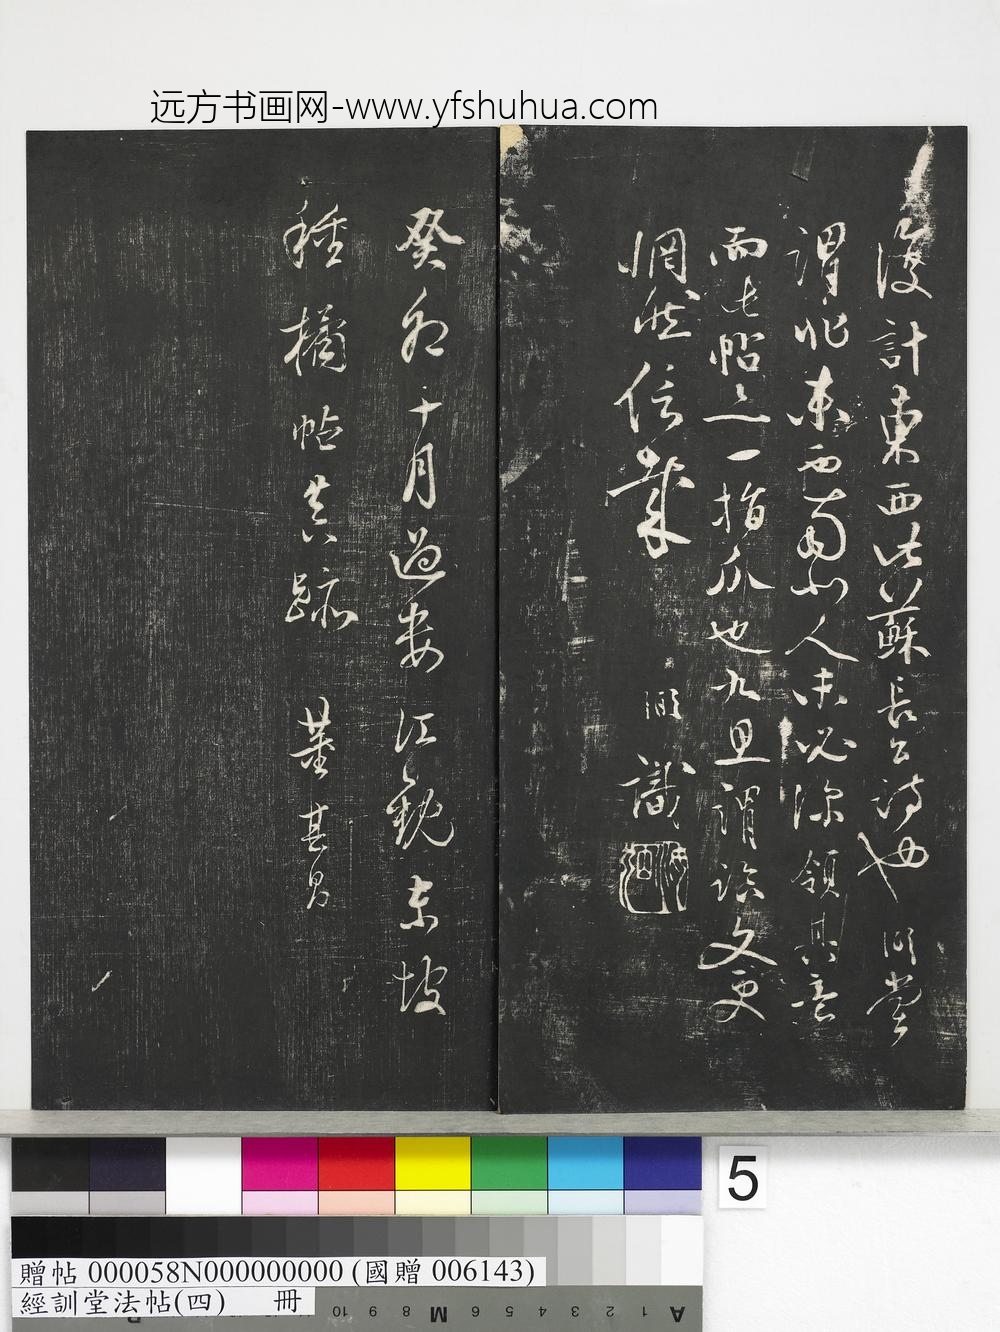 远方书画网-www.yfshuhua.com
復計東西此蘇長公詩也頃嘗
謂非東西南北人未必深領其意
而此帖亦一指爪也九謂論文更
惘然信哉
識
癸卯十月過婁江觀東坡
種橘帖真跡 董其昌
5
贈帖 000058N000000000 (國贈 006143)
經訓堂法帖(四) 冊
10 9 8 M 6 5 4 3 2 1 A